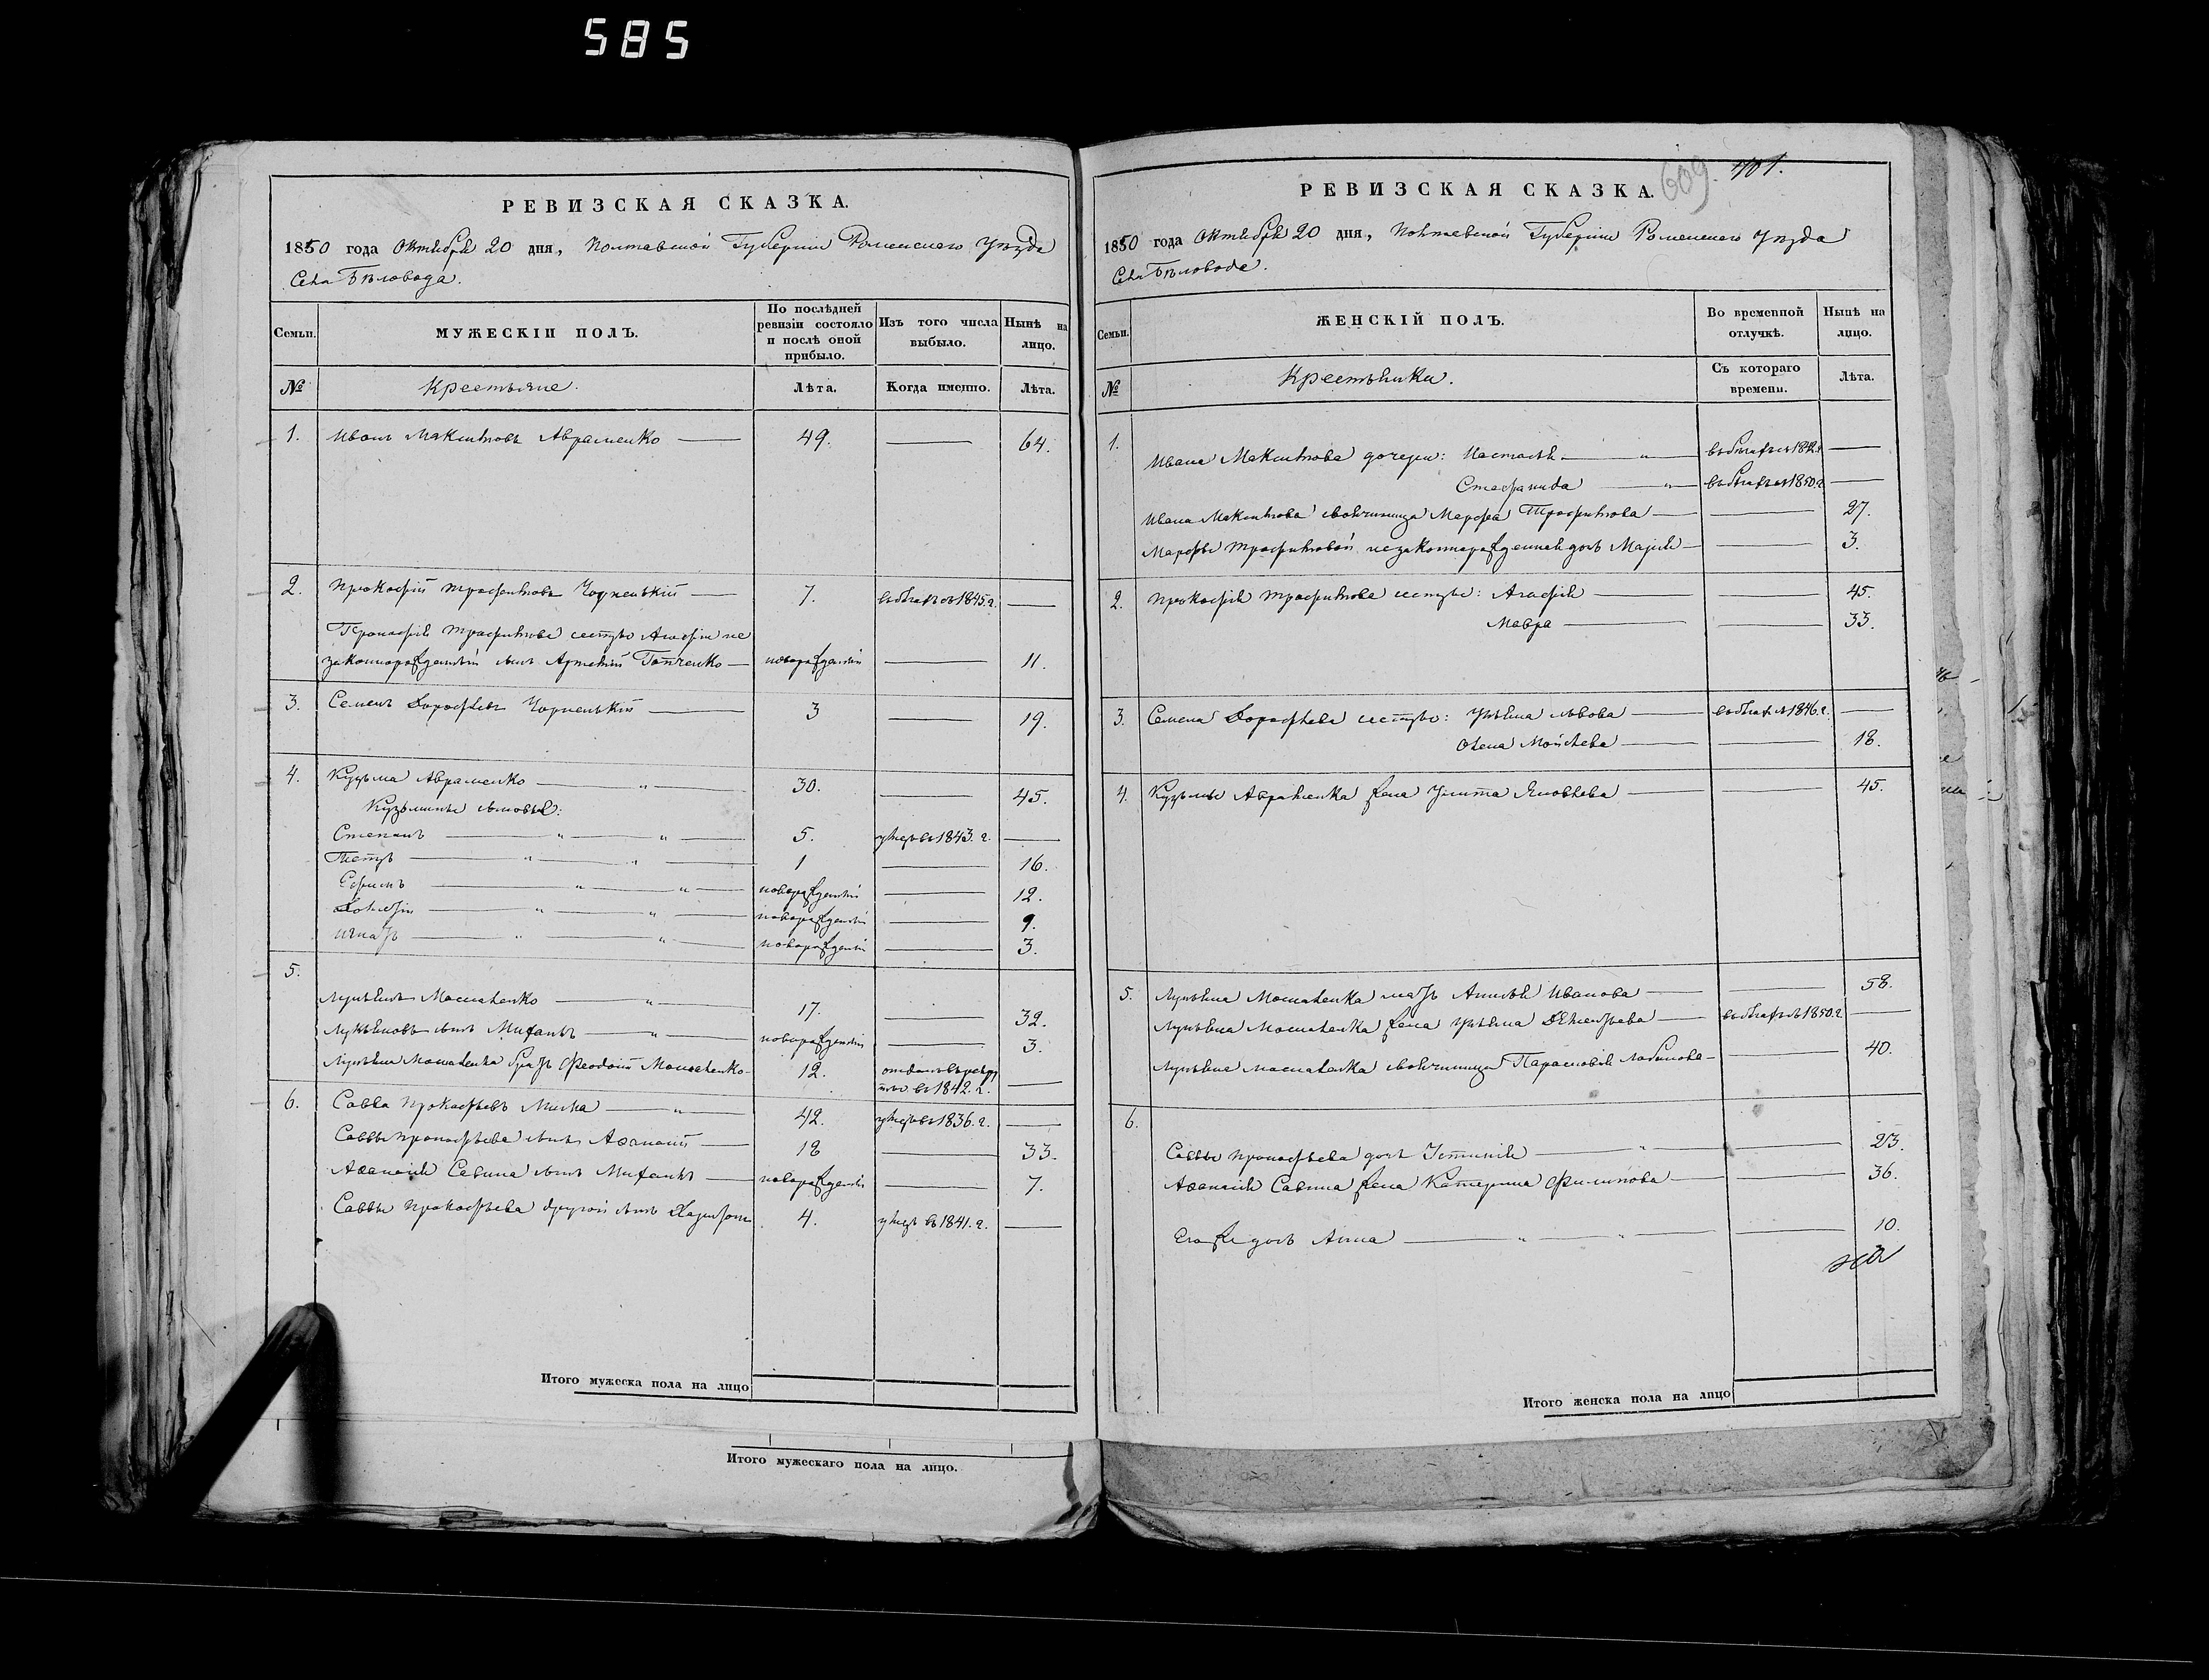 585
РЕВИЗСКАЯ СКАЗКА.
1850 года Октября 20 дня, Полтавской Губернии Роменского Уѣзда
Села Бѣловода.
Семьи.
МУЖЕСКІЙ ПОЛЪ.
По послѣдней ревизіи состояло и послѣ оной прибыло.
Изъ того числа выбыло.
Нынѣ на лицо.
№
Крестьяне.
Лѣта.
Когда именно.
Лѣта.
1. Иванъ Максимовъ Авраменко 49. 64.
2. Прокофій Трофимовъ Чорненькій 7. въ бѣгахъ съ 1845. г.
Прокофія Трофимова сестры Агафіи не
законнорожденный сынъ Артемій новорожденный 11.
3. Семенъ Дорофѣевъ Чорненькій 3 19.
4. Кузьма Авраменко 30. 45.
Кузьмины сыновья:
Степанъ 5. умеръ въ 1843. г.
Петръ 1 16.
Ефимъ новорожденный 12.
новорожденный 9.
Игнатъ новорожденный 3.
5.
Лукьянъ 17. 32.
Лукьяновъ сынъ Михаилъ новорожденный 3.
Лукьяна братъ Феодосій 12. отданъ въ рекру
ты въ 1842. г.
6. Савва Прокофьевъ 42. умеръ въ 1836. г.
Саввы Прокофьева сынъ Афанасій 18 33.
Афанасія Савина сынъ Михаилъ новорожденный 7.
Саввы Прокофьева другой сынъ Харитонъ 4. умеръ въ 1841. г.
Итого мужеска пола на лицо
Итого мужескаго пола на лицо.
609. 401.
РЕВИЗСКАЯ СКАЗКА.
1850 года Октября 20 дня, Полтавской Губернии Роменского Уѣзда
Села Бѣловода.
Семьи.
ЖЕНСКІЙ ПОЛЪ.
Во временной отлучкѣ.
Нынѣ на лицо.
№
Крестьянки.
Съ котораго времени.
Лѣта.
1.
Ивана Максимова дочери: Настасья въ бѣгахъ съ 1842. г.
Стефанида въ бѣгахъ съ 1850. г.
Ивана Максимова своячиница Марфа Трофимова 27.
Марфы Трофимовой незаконнорожденная дочь Марія 3.
2. Прокофія Трофимова сестры: Агафія 45.
Мавра 33.
3. Семена Дорофѣева сестры: Ульяна Львова въ бѣгахъ съ 1846. г.
Елена Мойсѣева 18.
4. Кузьмы Авраменка жена Улита Яковлева 45.
5. Лукьяна мать Анисья Иванова 58.
Лукьяна жена Ульяна Дементьева въ бѣгахъ съ 1850. г.
Лукьяна своячиница Парасковья 40.
6.
Саввы Прокофьева дочь Устинія 23.
Афанасія Савина жена Катерина Филипова 36.
Его же дочь Анна 10.
Итого женска пола на лицо